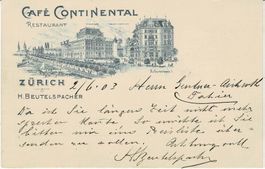 CAFÉ CONTINENTAL
RESTAURANT
ZÜRICH
H. BEUTELSPACHER
2/6.03 Herrn
Da ich Sie längere Zeit nicht mehr
so möchte ich Sie
bitten mir eine Preisliste über-
senden zu wollen. Achtungsvoll
H. Beutelspacher